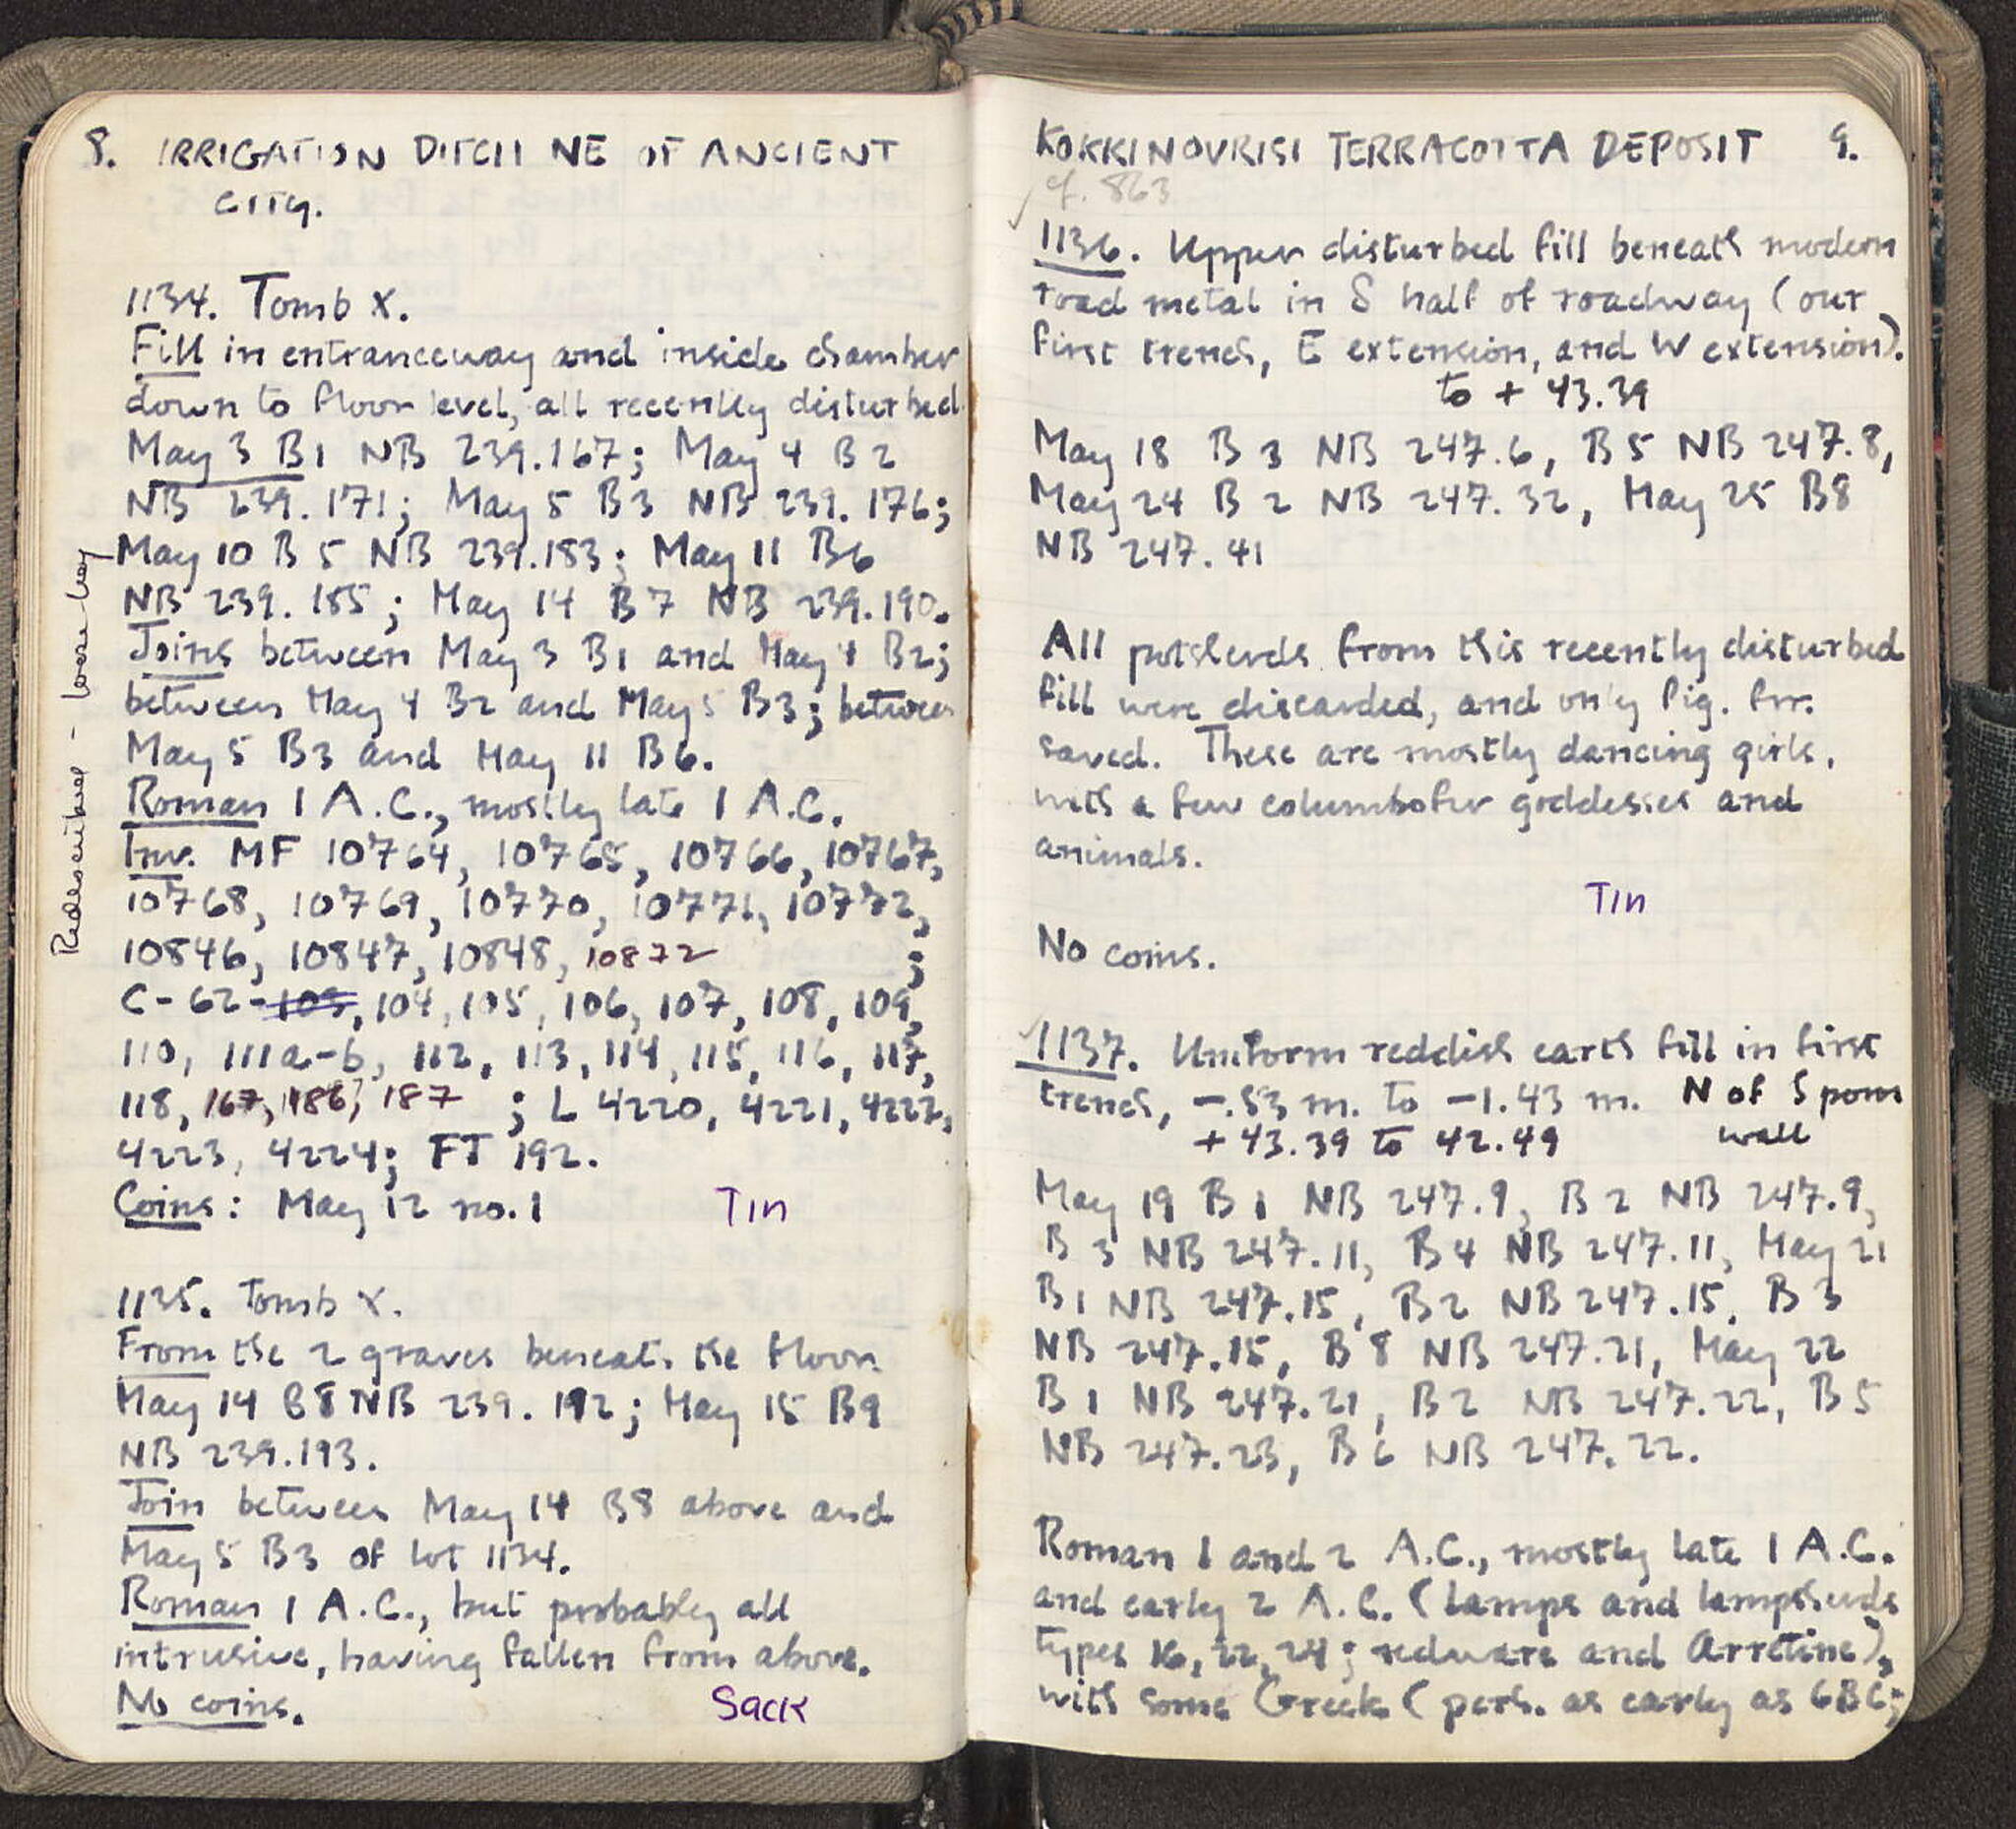 8. IRRIGATION DITCH NE OF ANCIENT
CITY.
1134. Tomb X.
Fill in entranceway and inside chamber
down to floor level, all recently disturbed
May 3 B1 NB 239.167; May 4 B2
NB 239.171; May 5 B3 NB 239.176;
May 10 B5 NB 239.183; May 11 B6
NB 239.185; May 14 B7 NB 239.190.
Joins between May 3 B1 and May 4 B2;
between May 4 B2 and May 5 B3; between
May 5 B3 and May 11 B6.
Roman 1 A.C., mostly late 1 A.C.
Inv. MF 10764, 10765, 10766, 10767,
10768, 10769, 10770, 10771, 10772,
10846, 10847, 10848, 10872 ;
C-62-103, 104, 105, 106, 107, 108, 109,
110, 111a-b, 112, 113, 114, 115, 116, 117,
118, 167, 186, 187 ; L 4220, 4221, 4222,
4223, 4224; FT 192.
Coins: May 12 no. 1 Tin
1135. Tomb X.
From the 2 graves beneath the floor.
May 14 B8 NB 239.192; May 15 B9
NB 239.193.
Join between May 14 B8 above and
May 5 B3 of lot 1134.
Roman 1 A.C., but probably all
intrusive, having fallen from above.
No coins. Sack
KOKKINOVRISI TERRACOTTA DEPOSIT 9.
cf. 863
1136. Upper disturbed fill beneath modern
road metal in S half of roadway (our
first trench, E extension, and W extension).
to + 43.39
May 18 B3 NB 247.6, B5 NB 247.8,
May 24 B2 NB 247.32, May 25 B8
NB 247.41
All potsherds from this recently disturbed
fill were discarded, and only fig. frr.
saved. These are mostly dancing girls,
with a few columbofer goddesses and
animals.
Tin
No coins.
1137. Uniform reddish earth fill in first
trench, -.53 m. to -1.43 m. N of S poros
+ 43.39 to 42.49 wall
May 19 B1 NB 247.9, B2 NB 247.9,
B3 NB 247.11, B4 NB 247.11, May 21
B1 NB 247.15, B2 NB 247.15, B3
NB 247.15, B8 NB 247.21, May 22
B1 NB 247.21, B2 NB 247.22, B5
NB 247.23, B6 NB 247.22.
Roman 1 and 2 A.C., mostly late 1 A.C.
and early 2 A.C. (lamps and lampsherds
types 16, 22, 24; redware and Arretine),
with some Greek (perh. as early as 6 BC;